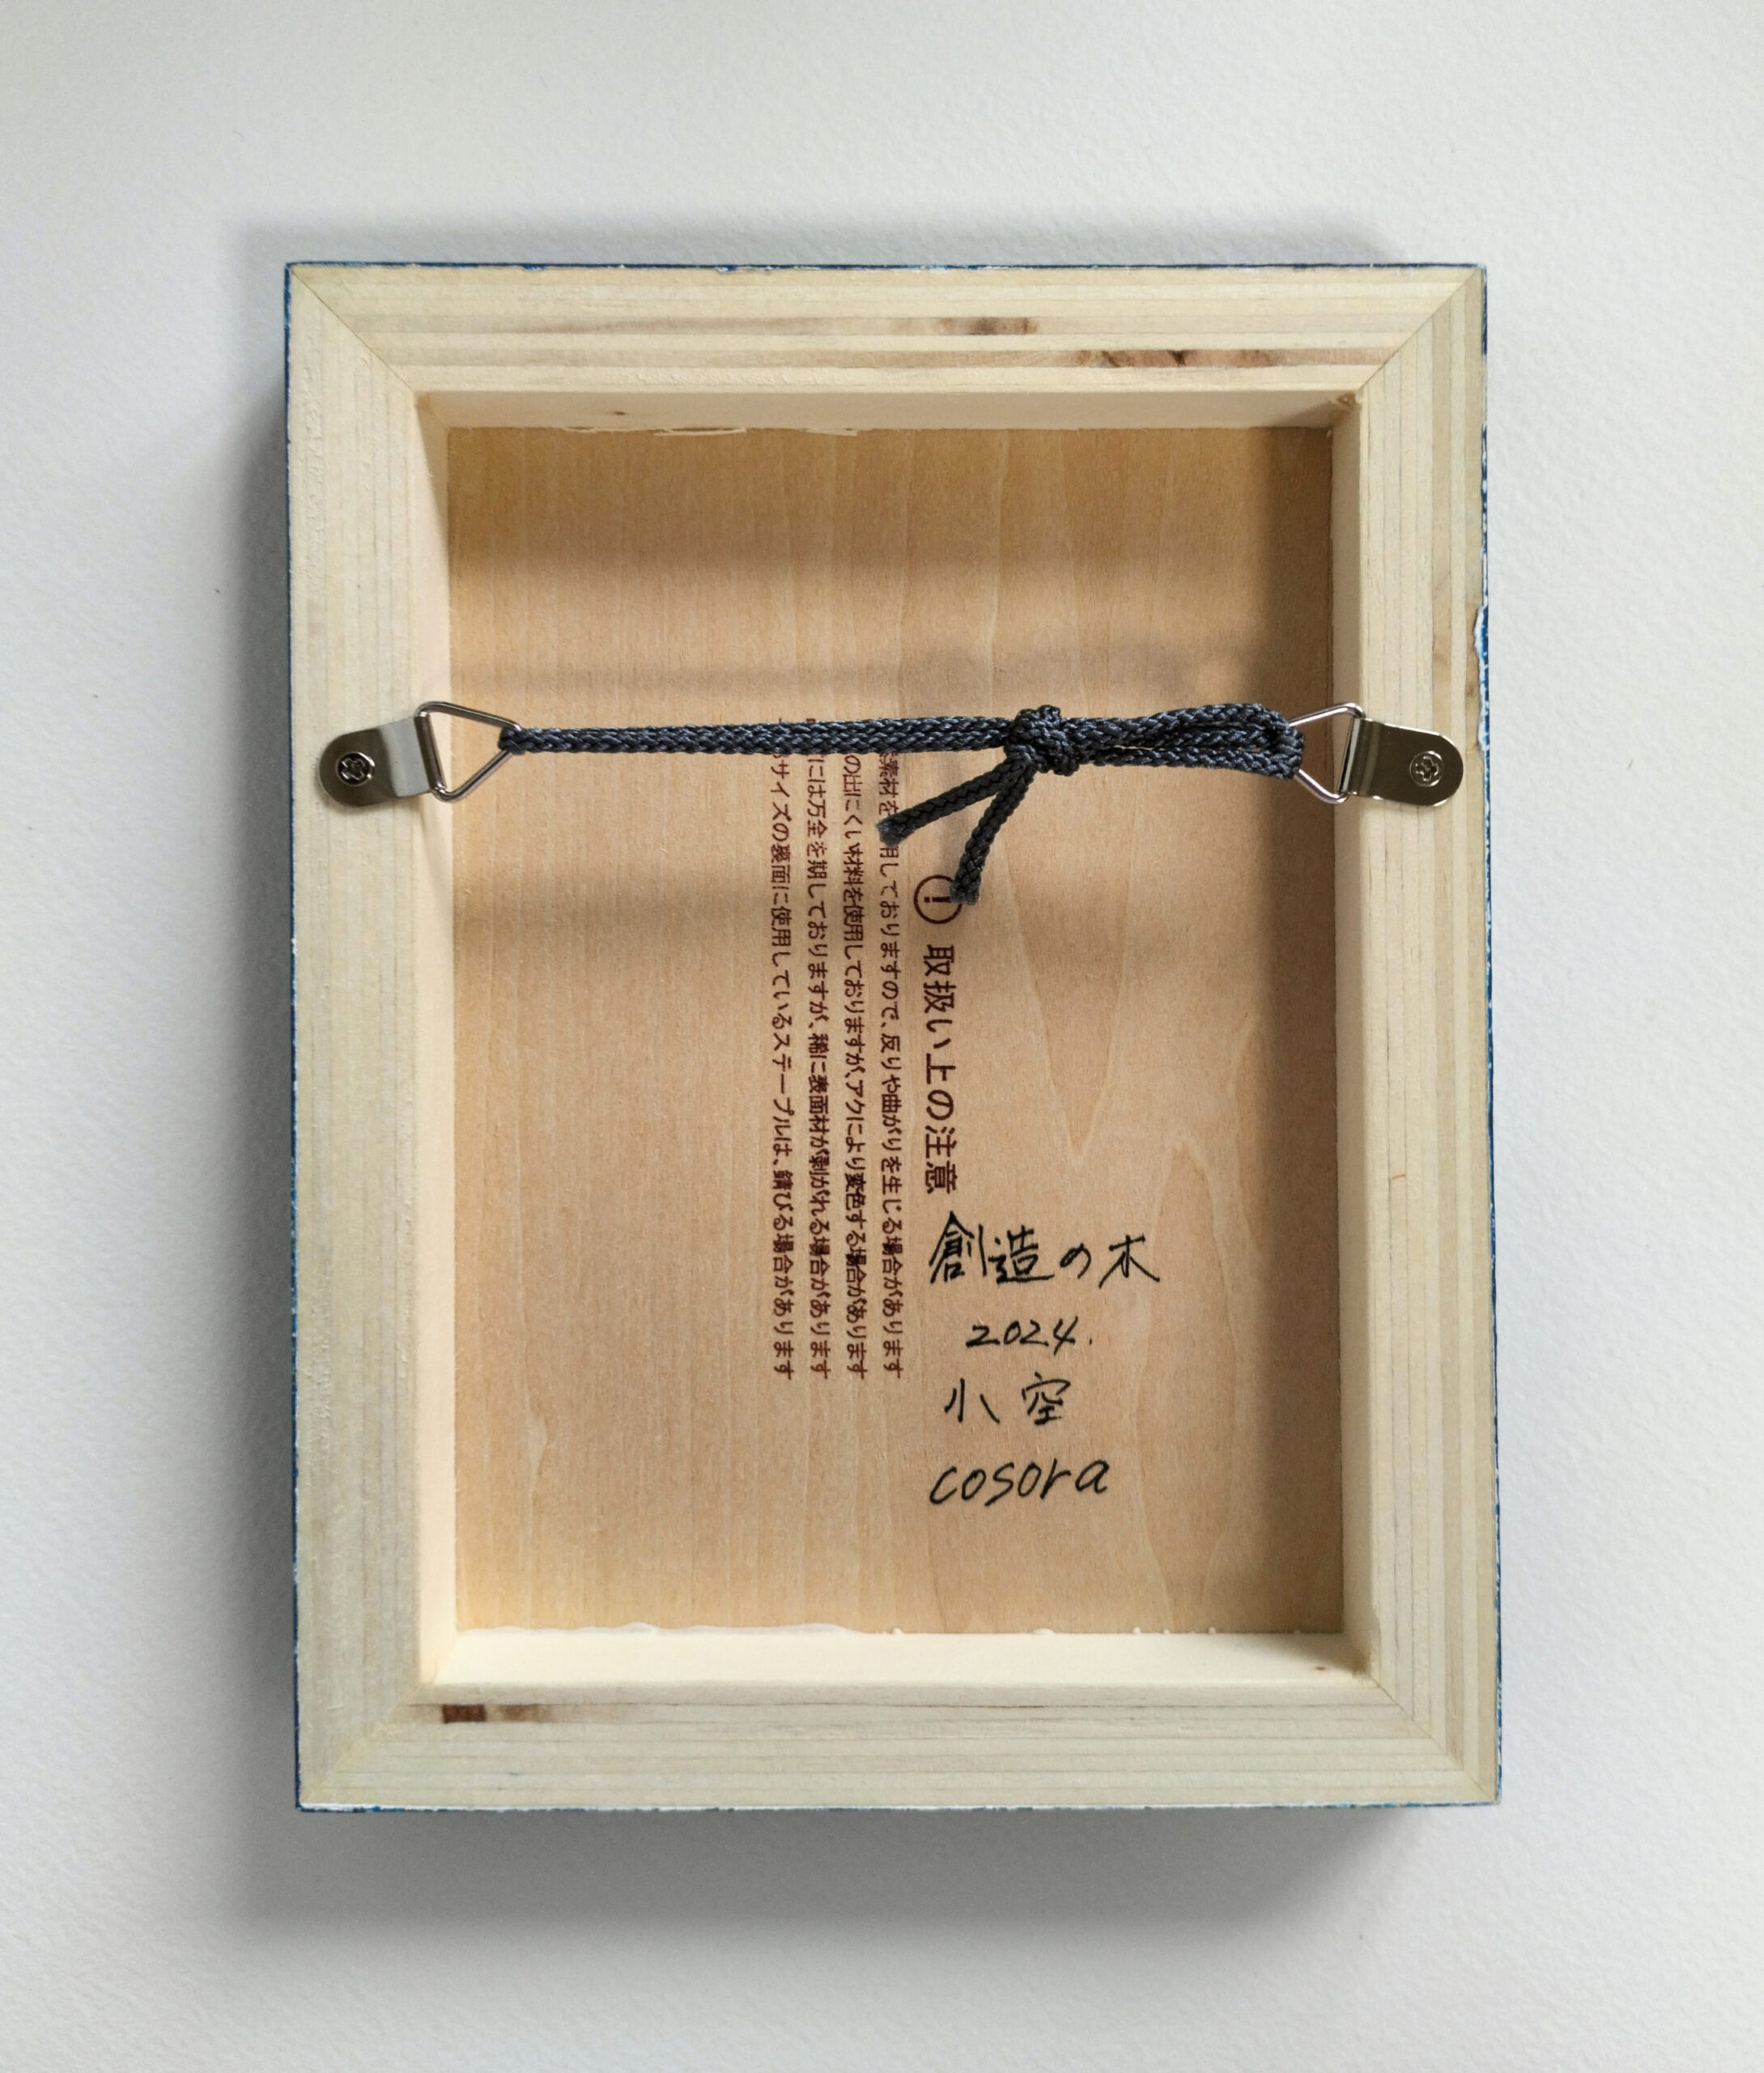 取扱い上の注意
素材を用しておりますので、反りや曲がりを生じる場合があります
の出にくい材料を使用しておりますが、アクにより変色する場合があります
には万全を期しておりますが、稀に表面材が剥がれる場合があります
サイズの裏面に使用しているステープルは、錆びる場合があります
創造の木
2024.
小空
cosora